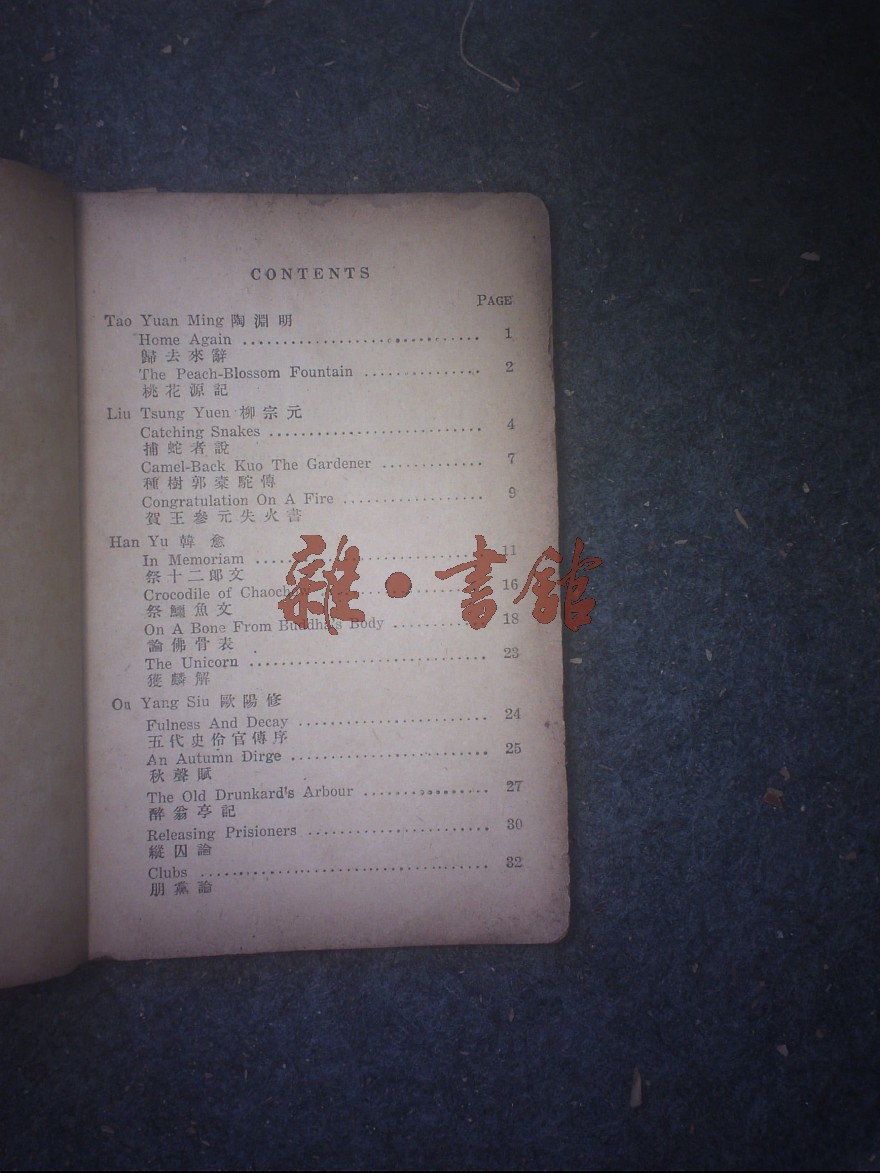 CONTENTS
PAGE
Tao Yuan Ming 陶淵明
Home Again 1
歸去來辭
The Peach-Blossom Fountain 2
桃花源記
Liu Tsung Yuen 柳宗元
Catching Snakes 4
捕蛇者說
Camel-Back Kuo The Gardener 7
種樹郭橐駝傳
Congratulation On A Fire 9
賀王參元失火書
Han Yu 韓愈
In Memoriam 11
祭十二郎文
Crocodile of Chaochow 16
祭鱷魚文
On A Bone From Buddha's Body 18
論佛骨表
The Unicorn 23
獲麟解
Ou Yang Siu 歐陽修
Fulness And Decay 24
五代史伶官傳序
An Autumn Dirge 25
秋聲賦
The Old Drunkard's Arbour 27
醉翁亭記
Releasing Prisioners 30
縱囚論
Clubs 32
朋黨論
雜·書館